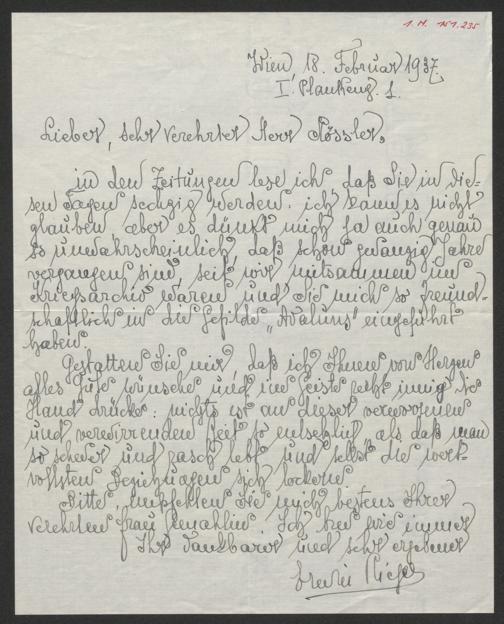 I. N. 151.235
Wien 18. Februar 1937.
I. Plankeng. 1.
Lieber, sehr verehrter Herr Rössler,
in den Zeitungen lese ich daß Sie in die-
sen Tagen sechzig werden. ich kann es nicht
glauben aber es dünkt mich ja auch genau
so unwahrscheinlich daß schon zwanzig Jahre
vergangen sind, seit wir mitsammen im
Kriegsarchiv waren und Sie mich so freund-
schaftlich in die Gefilde „Avaluns" eingeführt
haben.
Gestatten Sie mir, daß ich Ihnen von Herzen
alles Gute wünsche und im Geiste recht innig die
Hand drücke: nichts ist an dieser verworrenen
und verwirrenden Zeit so entsetzlich als daß man
so schwer und rasch lebt und selbst die wert-
vollsten Beziehungen sich lockern
Bitte empfehlen Sie mich bestens Ihrer
verehrten Frau Gemahlin. Ich bin wie immer
Ihr dankbarer und sehr ergebener
Erwin Rieger